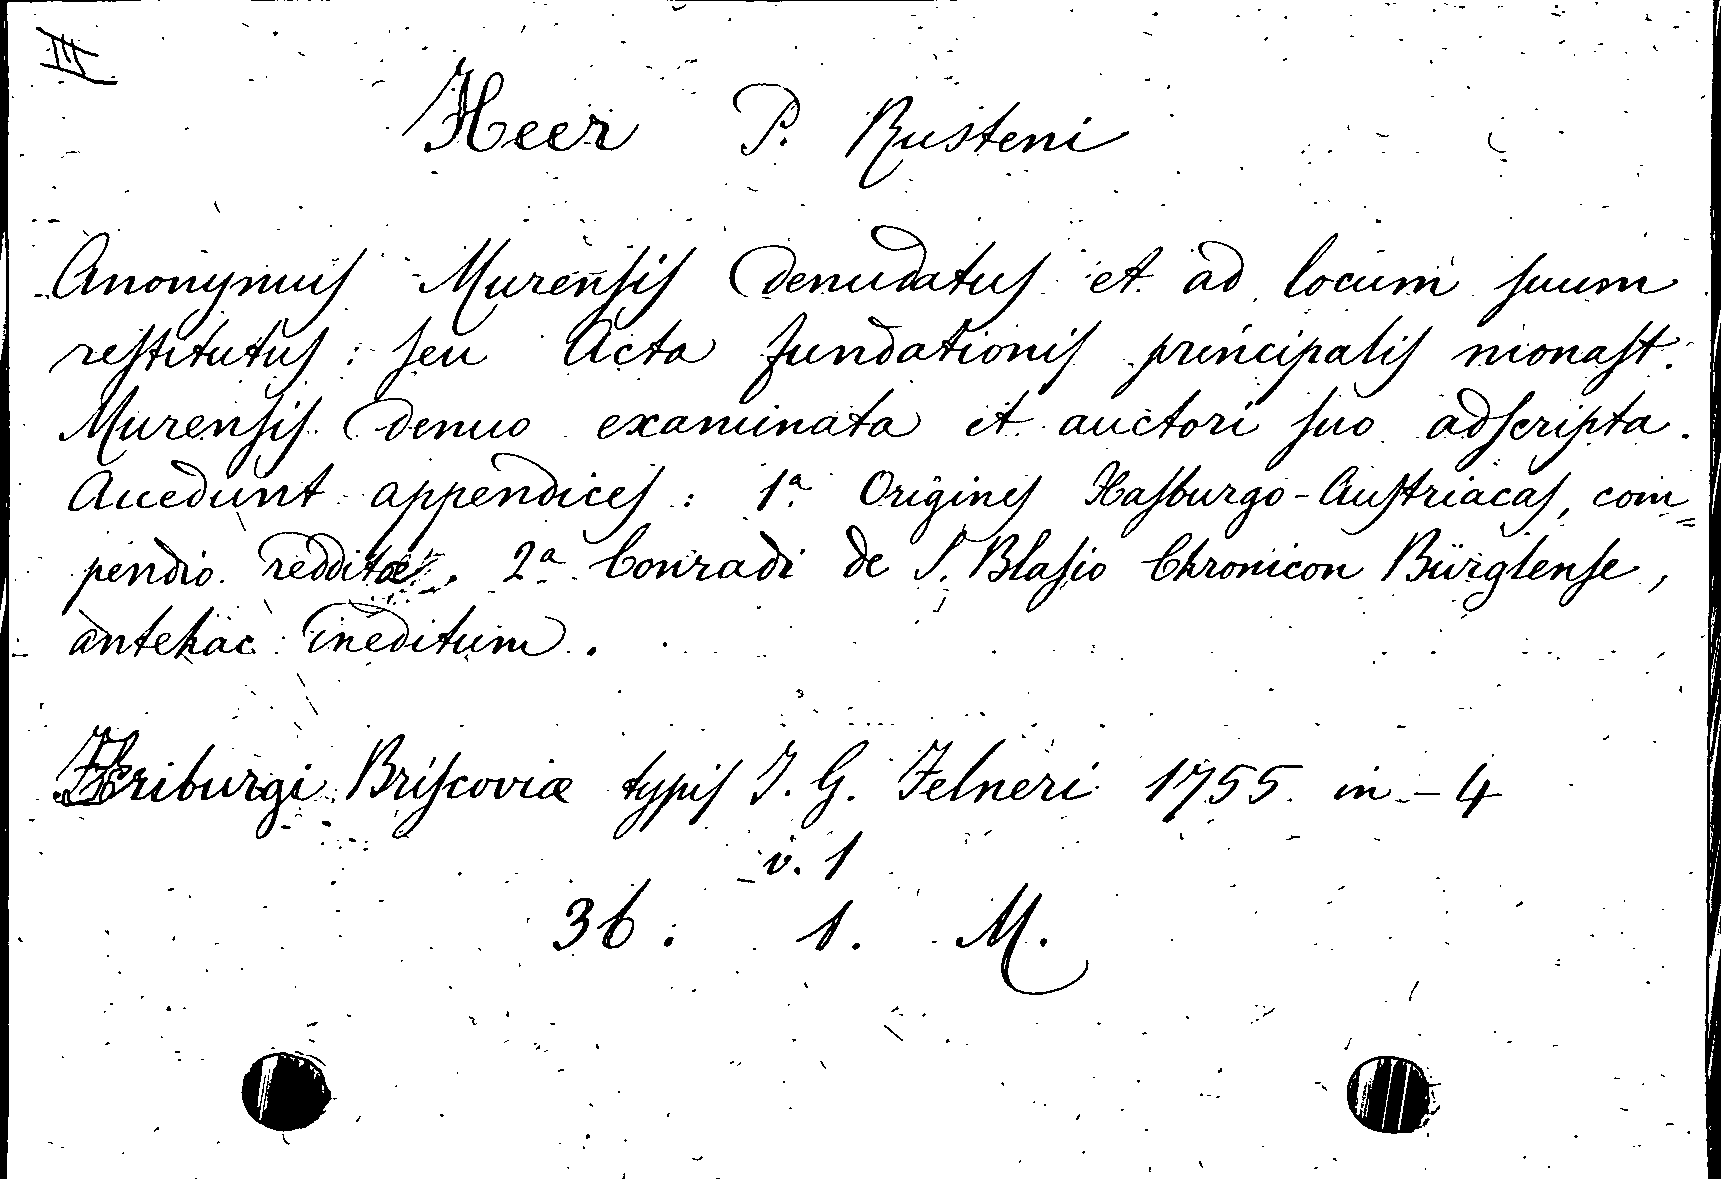 III
Heer P. Rusteni
Anonymus Murensis denudatus et ad locum suum
restitutus : seu Acta fundationis principalis monast.
Murensis denuo examinata et auctori suo adscripta.
Accedunt appendices : 1a Origines Hasburgo-Austriacas, com=
pendio redditæ. 2a Conradi de S. Blasio Chronicon Bürglense,
antehac ineditum.
Friburgi Briscoviæ typis J. G. Felneri 1755 in-4
v. 1
36. 1. M.